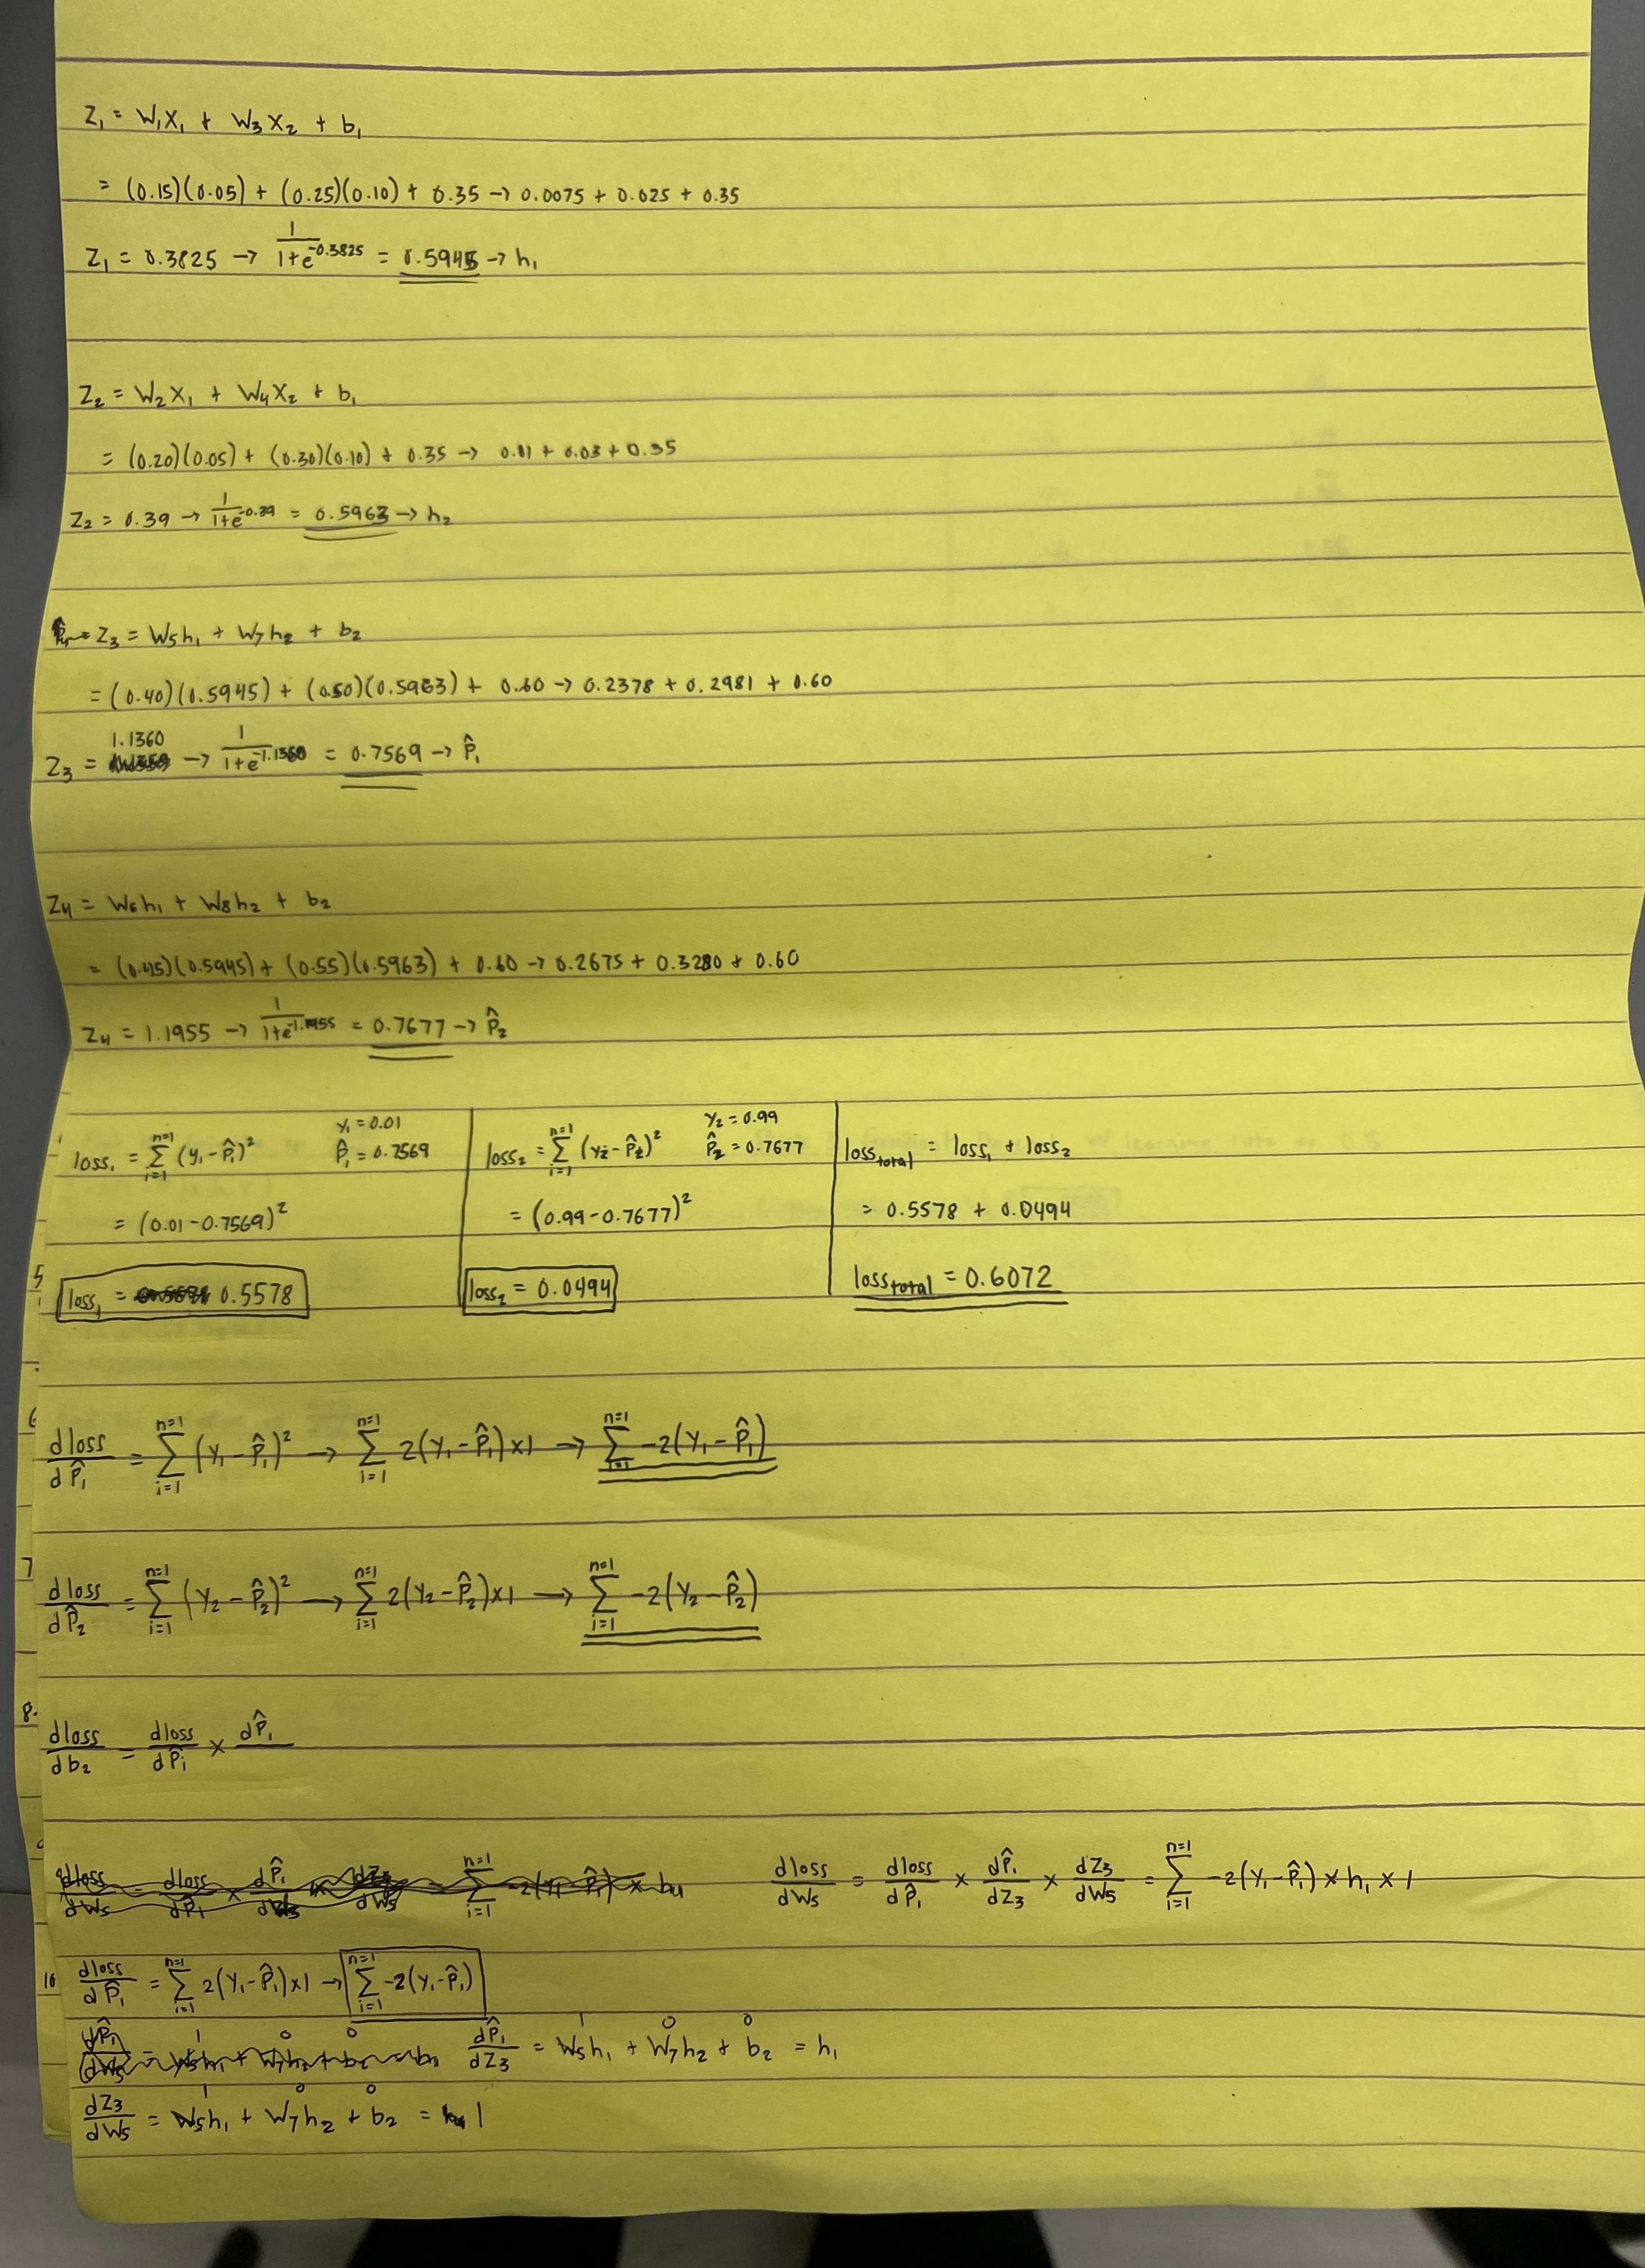 Z₁ = W₁X₁ + W₃X₂ + b₁
= (0.15)(0.05) + (0.25)(0.10) + 0.35 → 0.0075 + 0.025 + 0.35
Z₁ = 0.3825 → 1/(1+e^-0.3825) = 0.5945 → h₁
Z₂ = W₂X₁ + W₄X₂ + b₁
= (0.20)(0.05) + (0.30)(0.10) + 0.35 → 0.01 + 0.03 + 0.35
Z₂ = 0.39 → 1/(1+e^-0.39) = 0.5963 → h₂
Z₃ = W₅h₁ + W₇h₂ + b₂
= (0.40)(0.5945) + (0.50)(0.5963) + 0.60 → 0.2378 + 0.2981 + 0.60
Z₃ = 1.1360 → 1/(1+e^-1.1360) = 0.7569 → P̂₁
Z₄ = W₆h₁ + W₈h₂ + b₂
= (0.45)(0.5945) + (0.55)(0.5963) + 0.60 → 0.2675 + 0.3280 + 0.60
Z₄ = 1.1955 → 1/(1+e^-1.1955) = 0.7677 → P̂₂
loss₁ = Σ_{i=1}^{n=1} (y₁-P̂₁)² y₁ = 0.01 P̂₁ = 0.7569
= (0.01-0.7569)²
5 loss₁ = 0.5578
loss₂ = Σ_{i=1}^{n=1} (y₂-P̂₂)² y₂ = 0.99 P̂₂ = 0.7677
= (0.99-0.7677)²
loss₂ = 0.0494
loss_total = loss₁ + loss₂
= 0.5578 + 0.0494
loss_total = 0.6072
6 dloss/dP̂₁ = Σ_{i=1}^{n=1} (y₁-P̂₁)² → Σ_{i=1}^{n=1} 2(y₁-P̂₁)×1 → Σ_{i=1}^{n=1} -2(y₁-P̂₁)
7 dloss/dP̂₂ = Σ_{i=1}^{n=1} (y₂-P̂₂)² → Σ_{i=1}^{n=1} 2(y₂-P̂₂)×1 → Σ_{i=1}^{n=1} -2(y₂-P̂₂)
8. dloss/db₂ = dloss/dP̂₁ × dP̂₁/
dloss/dW₅ = dloss/dP̂₁ × dP̂₁/dZ₃ × dZ₃/dW₅ = Σ_{i=1}^{n=1} -2(y₁-P̂₁) × h₁ × 1
10 dloss/dP̂₁ = Σ_{i=1}^{n=1} 2(y₁-P̂₁)×1 → Σ_{i=1}^{n=1} -2(y₁-P̂₁)
1 0 0
dP̂₁/dZ₃ = W₅h₁ + W₇h₂ + b₂ = h₁
1 0 0
dZ₃/dW₅ = W₅h₁ + W₇h₂ + b₂ = 1